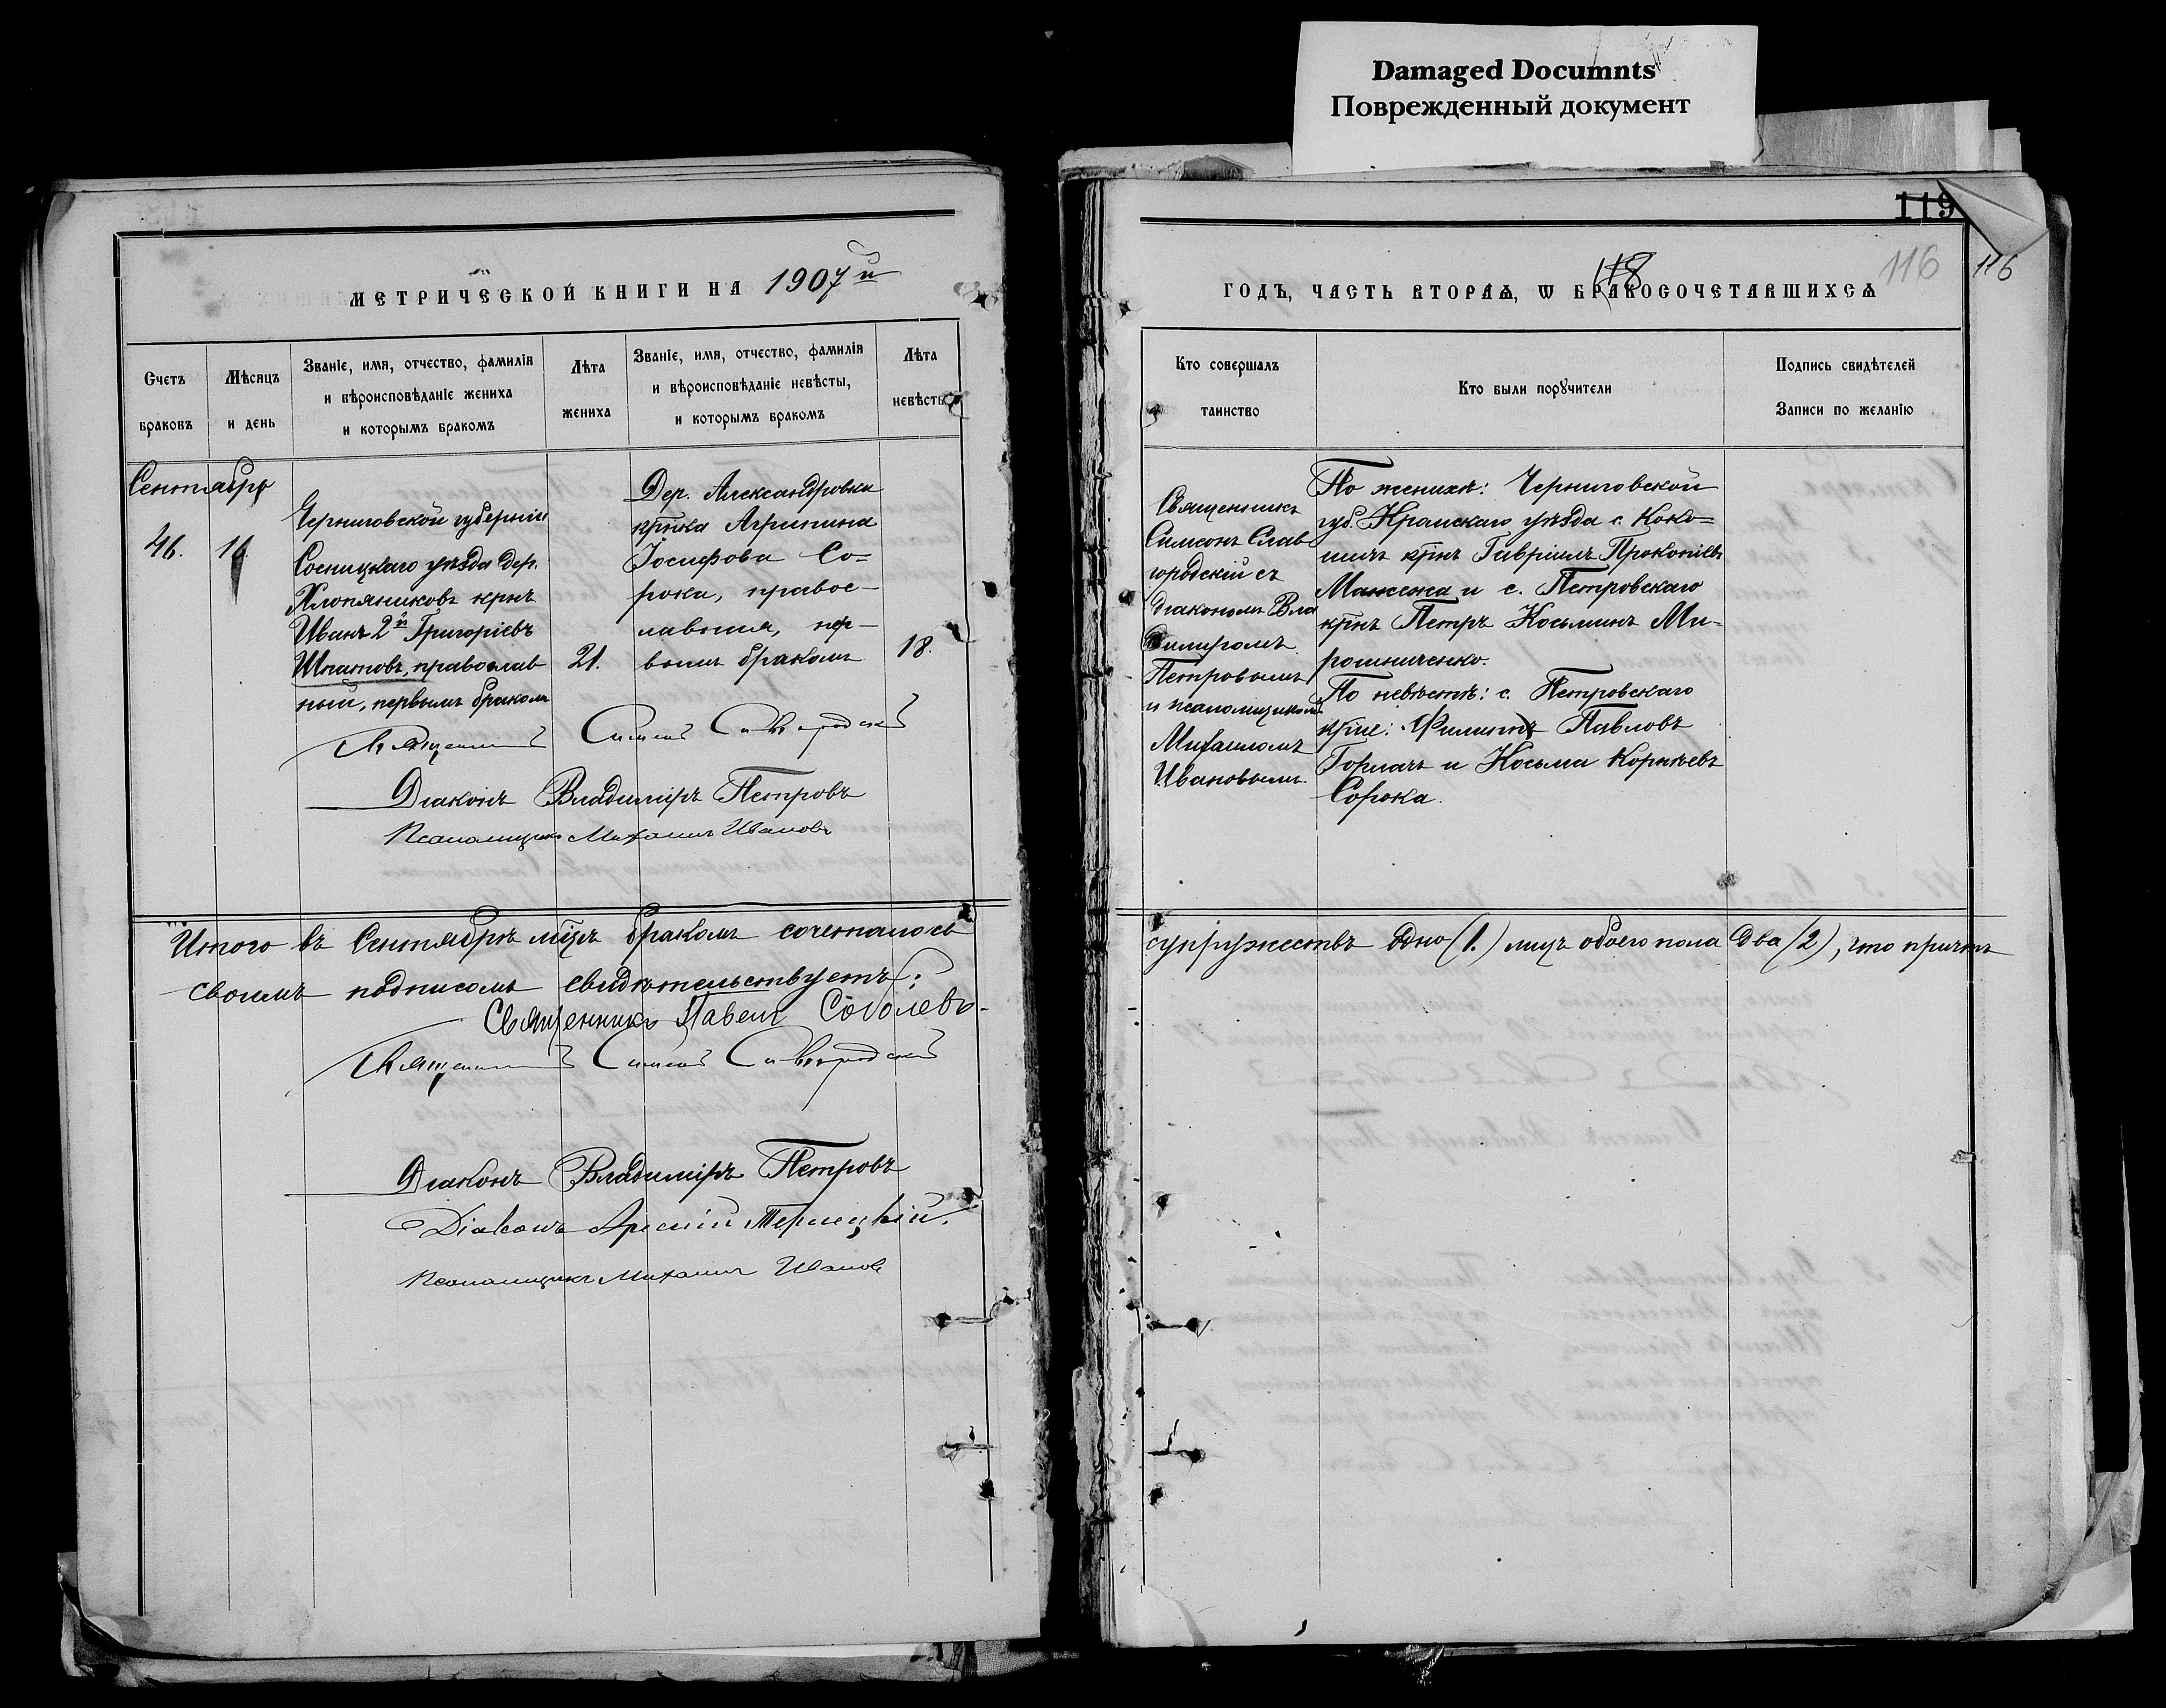 Damaged Documnts
Поврежденный документ
МЕТРИЧЕСКОЙ КНИГИ НА 1907й
Счетъ браковъ
Мѣсяцъ и день
Званіе, имя, отчество, фамилія и вѣроисповѣданіе жениха и которымъ бракомъ
Лѣта жениха
Званіе, имя, отчество, фамилія и вѣроисповѣданіе невѣсты, и которымъ бракомъ
Лѣта невѣсты
Сентябрь
46.
16
Черниговской губерніи
Сосницкаго уѣзда дер.
Хлопяниковъ крнъ
Иванъ 2й Григоріевъ
Шпатовъ, православ
ный, первымъ бракомъ
21.
Дер. Александровки
крнка Агрипина
Іосифова Со=
рока, правос–
лавныя, пер–
вымъ бракомъ
18.
Священникъ Симеонъ Славгородскій
Діаконъ Владиміръ Петровъ
Псаломщикъ Михаилъ Ивановъ
Итого въ Сентябрѣ мцѣ бракомъ сочеталось
своимъ подписомъ свидѣтельствуетъ:
Священникъ Павелъ Соболевъ
Священникъ Симеонъ Славгородскій
Діаконъ Владиміръ Петровъ
Діаконъ Арсеній Терлецкій.
Псаломщикъ Михаилъ Ивановъ
119
118
116
116
ГОДЪ, ЧАСТЬ ВТОРАѦ, Ѡ БРАКОСОЧЕТАВШИХСѦ
Кто совершалъ таинство
Кто были порꙋчители
Подпись свидѣтелей Записи по желанію
Священникъ
Симеонъ Слав
городскій съ
діакономъ Вла
димиромъ
Петровымъ
и псаломщикомъ
Михаиломъ
Ивановымъ.
По женихѣ: Черниговской
губ. Кролъскаго уѣзда с. Коко=
шичъ крнъ Гавріилъ Прокопіевъ
Манжежа и с. Петровскаго
крнъ Петръ Косьминъ Ми–
рошниченко.
По невѣстѣ: с. Петровскаго
крне: Филиппъ Павловъ
Горлачъ и Косьма Корнѣевъ
Сорока.
супружествъ одно (1.) лицъ обоего пола два (2), что причтъ